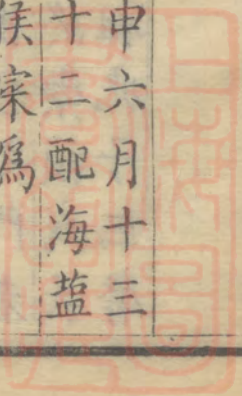 申六月十三
十二配海塩
侯寀爲